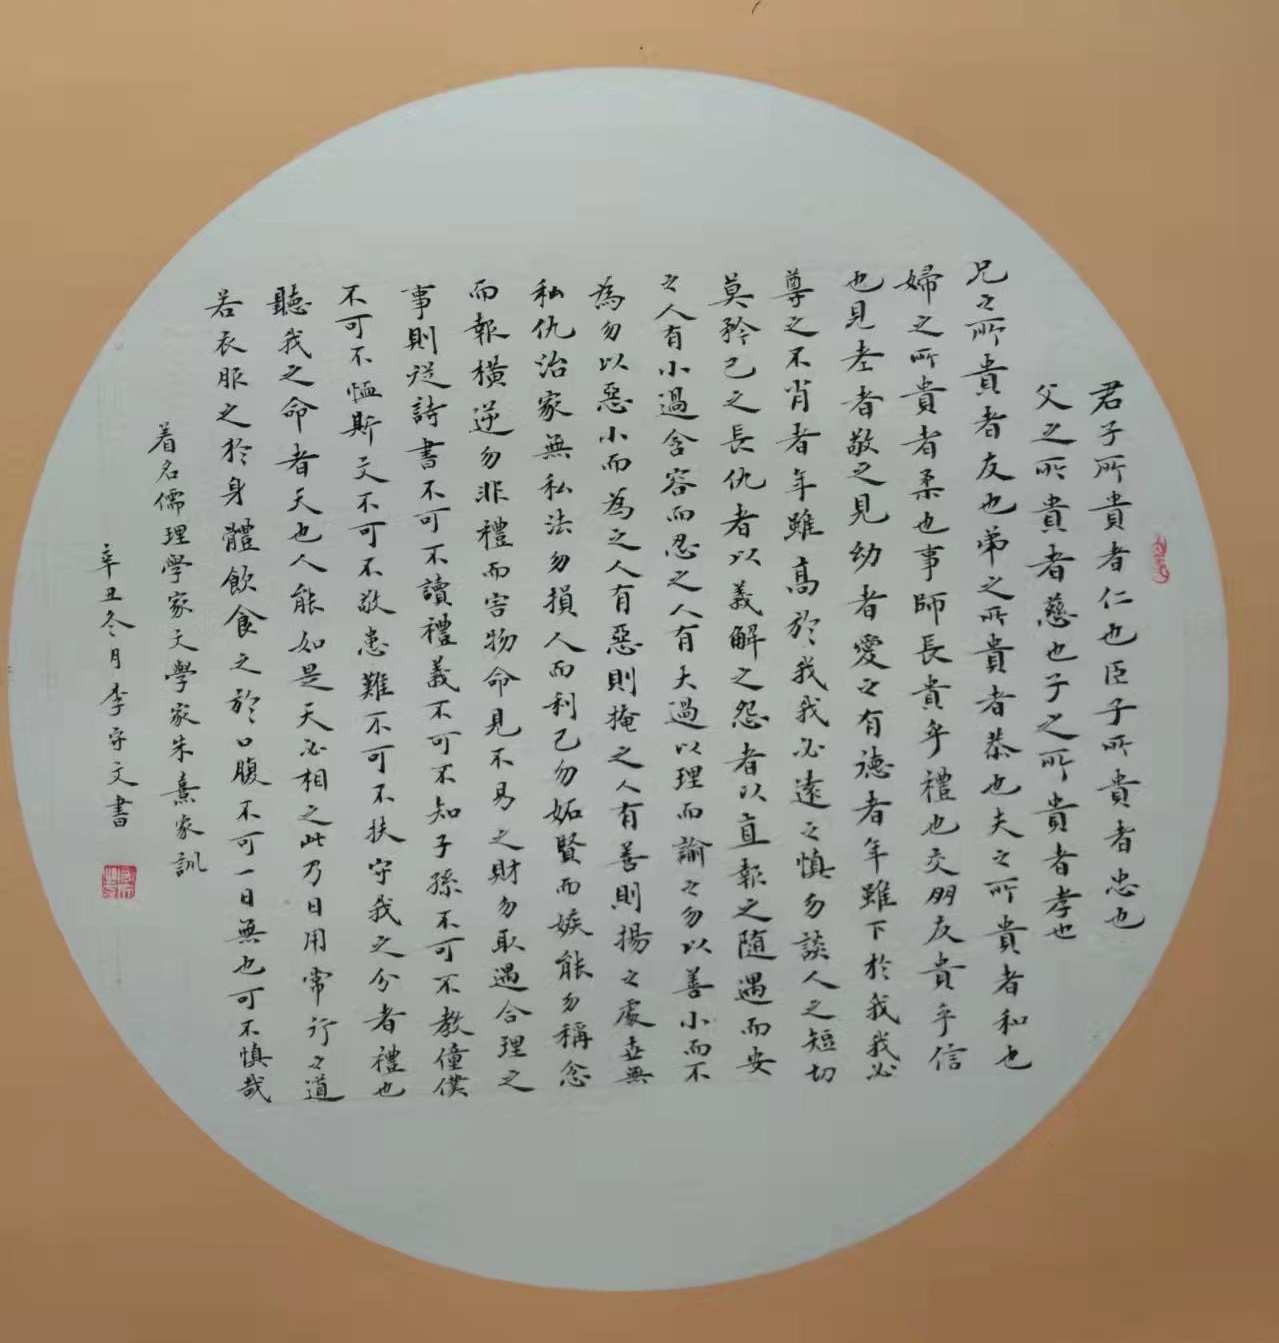 君子所貴者仁也臣子所貴者忠也
父之所貴者慈也子之所貴者孝也
兄之所貴者友也弟之所貴者恭也夫之所貴者和也
婦之所貴者柔也事師長貴乎禮也交朋友貴乎信
也見老者敬之見幼者愛之有德者年雖下於我我必
尊之不肖者年雖高於我我必遠之慎勿談人之短切
莫矜己之長仇者以義解之怨者以直報之隨遇而安
之人有小過含容而忍之人有大過以理而諭之勿以善小而不
為勿以惡小而為之人有惡則掩之人有善則揚之處世無
私仇治家無私法勿損人而利己勿妬賢而嫉能勿稱忿
而報橫逆勿非禮而害物命見不易之財勿取遇合理之
事則從詩書不可不讀禮義不可不知子孫不可不教僮僕
不可不恤斯文不可不敬患難不可不扶守我之分者禮也
聽我之命者天也人能如是天必相之此乃日用常行之道
若衣服之於身體飲食之於口腹不可一日無也可不慎哉
着名儒理學家天學家朱熹家訓
辛丑冬月李守文書